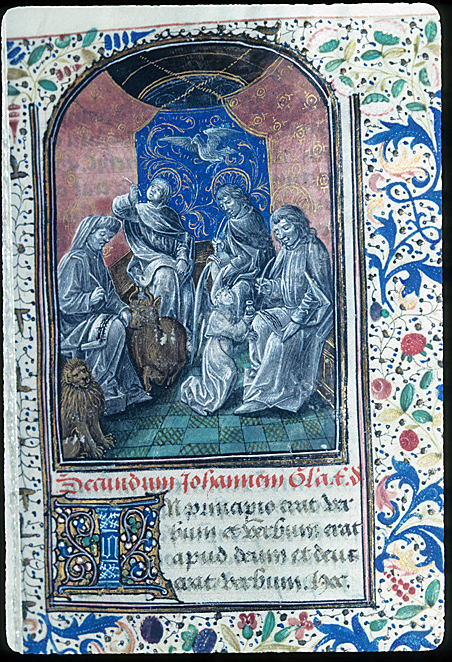 Secundum Johannem Gla. Et d
IN principio erat ver
bum et verbum erat
apud deum et deus
erat verbum. Hoc